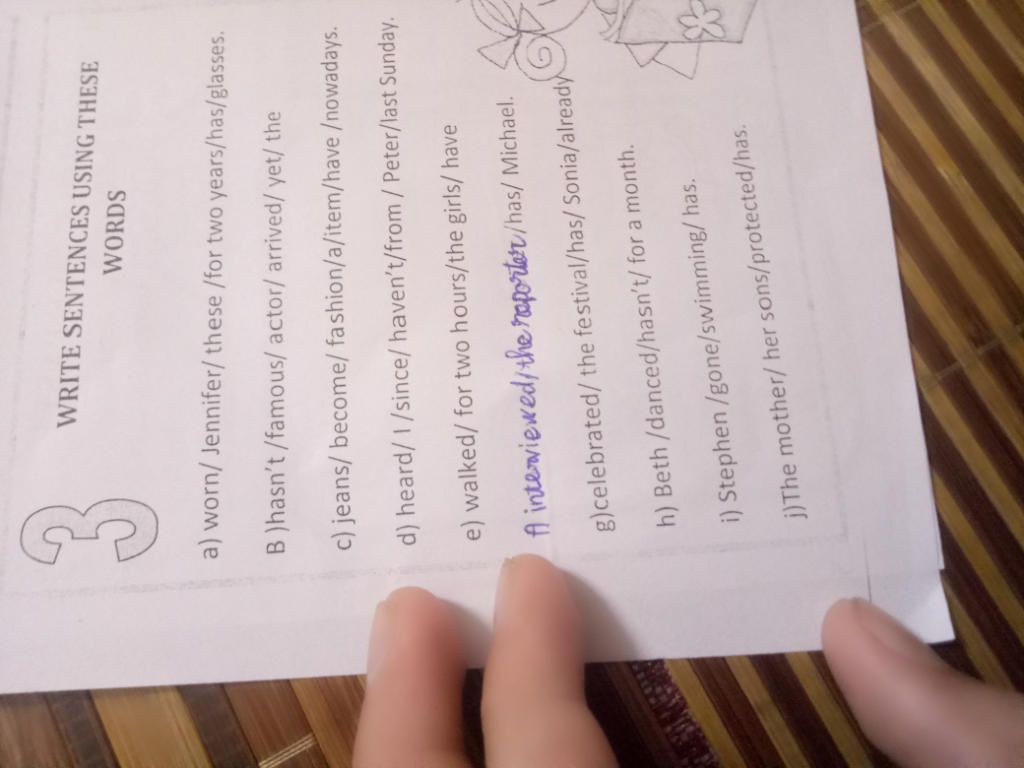 3
WRITE SENTENCES USING THESE
WORDS
a) worn/ Jennifer/ these /for two years/has/glasses.
B )hasn't /famous/ actor/ arrived/ yet/ the
c) jeans/ become/ fashion/a/item/have /nowadays.
d) heard/ I /since/ haven't/from / Peter/last Sunday.
e) walked/ for two hours/the girls/ have
f) interviewed/the reporter/has/ Michael.
g)celebrated/ the festival/has/ Sonia/already
h) Beth /danced/hasn't/ for a month.
i) Stephen /gone/swimming/ has.
j)The mother/ her sons/protected/has.